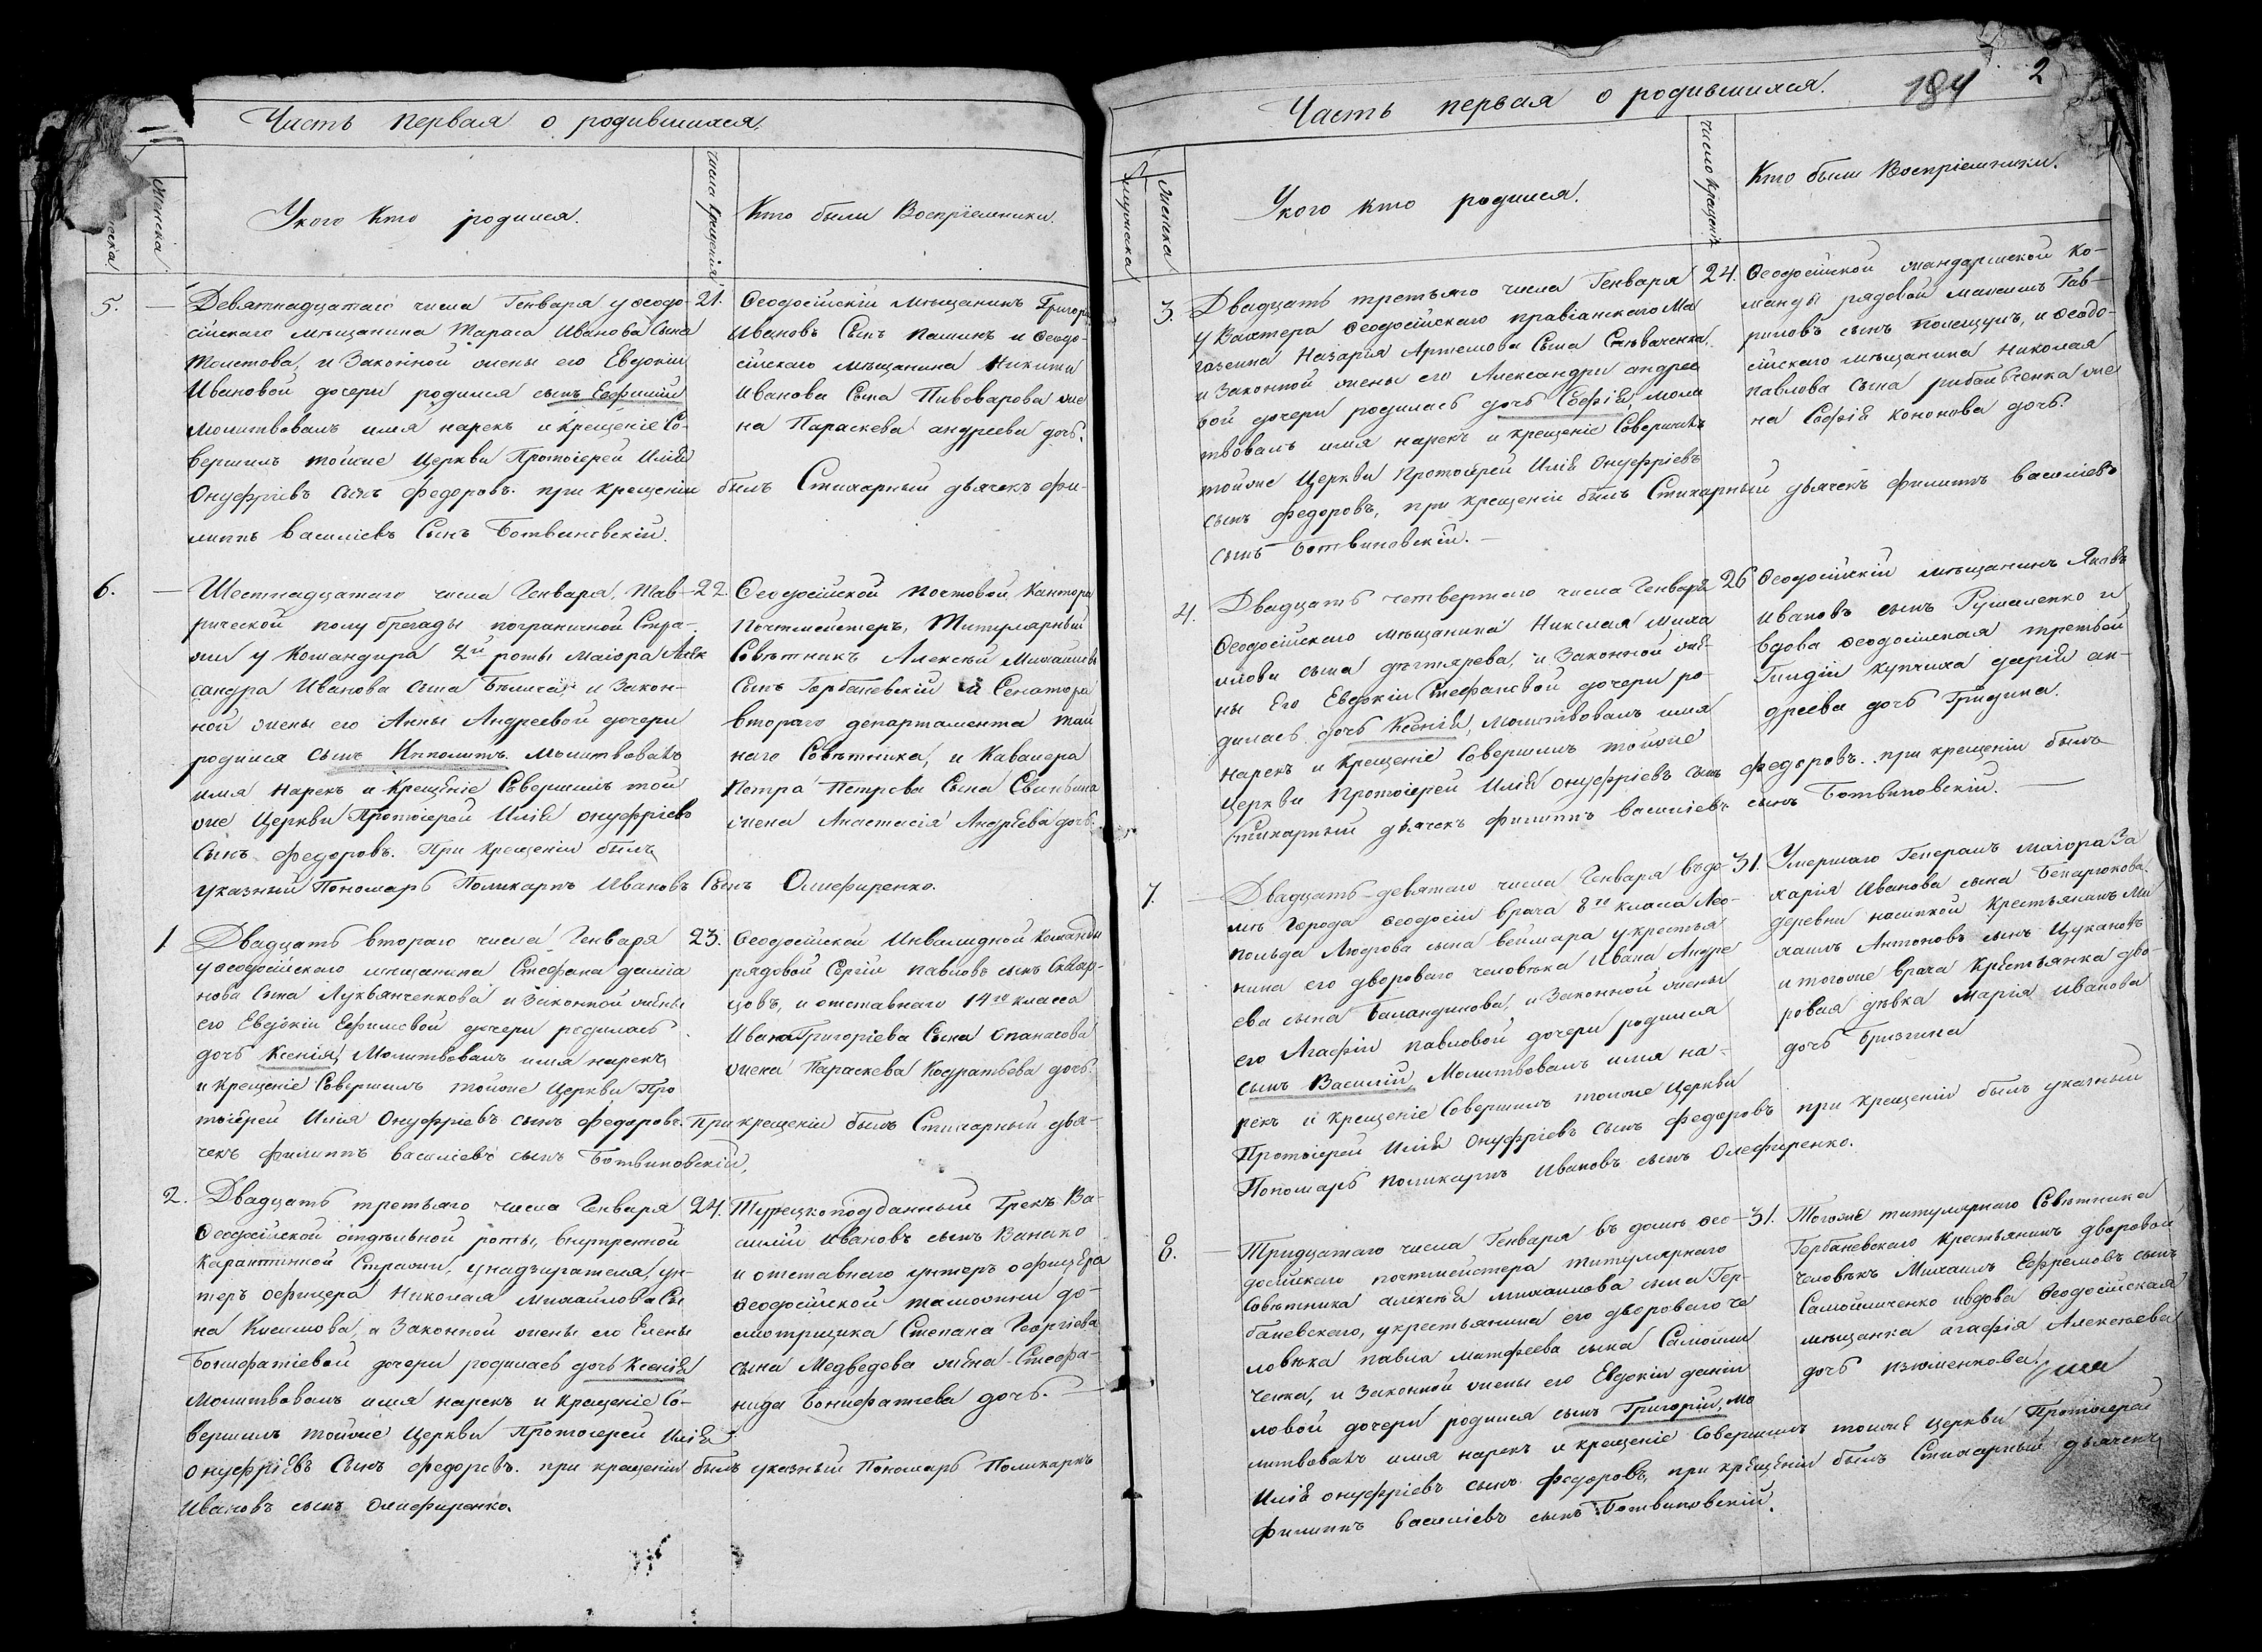 Часть первая о родившихся.
Женска
У кого кто родился.
число крещенія
Кто были Воспріемники.
5.
Девятнадцатаго числа Генваря у Ѳеодо-
сійскаго мѣщанина Тараса Иванова Сына
Толстова, и Законной жены его Евдокіи
Ивановой дочери родился сынъ Евфимій
молитвовалъ имя нарекъ и крещеніе Со-
вершилъ тойже Церкви Протоіерей Илія
Онуфріевъ сынъ Федоровъ. при крещеніи былъ Стихарный дьячекъ Фи-
липпъ Василіевъ Сынъ Ботвиновскій.
21.
Ѳеодосійскій мѣщанинъ Григорій
Ивановъ Сынъ и Ѳеодо-
сійскаго мѣщанина Никиты
Иванова Сына Пивоварова же
на Параскева андреева дочь.
6.
Шестнадцатаго числа Генваря, Тав-
рической полу бригады пограничной Стра-
жи у Командира 2й роты маіора Алек
сандра Иванова сына и Закон-
ной жены его Анны Андреевой дочери
родился Сынъ Ипполитъ. Молитвовалъ
имя нарекъ и крещеніе Совершилъ той
же Церкви Протоіерей Илія Онуфріевъ
Сынъ Федоровъ. При крещеніи былъ
указный Пономарь Поликарпъ Ивановъ Сынъ Олиеференко.
22.
Ѳеодосійской почтовой Канторы
Почтмейстеръ, Титулярный
Совѣтникъ Алексѣй Михаиловъ
Сынъ Гербаневскій и Сенатора
втораго департамента Тай
наго Совѣтника, и Кавалера
Петра Петрова Сына Свиньина
жена Анастасія Андреева дочь.
1
Двадцать втораго числа Генваря
у Ѳеодосійскаго мѣщанина Стефана даміа
нова Сына Лукьянченкова и Законной жены
его Евдокіи Ефимовой дочери родилась
дочь Ксенія, Молитвовалъ имя нарекъ
и крещеніе Совершилъ тойже Церкви Про
тоіерей Илія Онуфріевъ сынъ Федоровъ. При крещеніи былъ Стихарный дья-
чекъ Филиппъ Василіевъ сынъ Ботвиновскій,
23.
Ѳеодосійской Инвалидной Команды
рядовой Сергій Павловъ сынъ Сквар-
цовъ, и отставнаго 14го класса
Ивана Григоріева Сына Опанасова
жена Параскева Кодратьева дочь.
2.
Двадцать третьяго числа Генваря
Ѳеодосійской отдѣльной роты, внутренной
Карантинной Стражи, у надзирателя, ун-
теръ офицера Николая Михайлова Сы
на Киселова, и Законной жены его Елены
Бонифатіевой дочери родилась дочь Ксенія
Молитвовалъ имя нарекъ и крещеніе Со-
вершилъ тойже Церкви Протоіерей Илія
Онуфріевъ Сынъ Федоровъ. при крещеніи былъ указный Пономарь Поликарпъ
Ивановъ сынъ Олиеференко.
24.
Турецкоподданный Грекъ Ва-
силій Ивановъ сынъ Ванако
и отставнаго унтеръ офицера
Ѳеодосійской таможни до-
смотрщика Степана Георгіева
сына Медведева жена Стефа-
нида Бонифатіева дочь.
Часть первая о родившихся.
184
2
Мужеска
Женска
У кого кто родился.
число крещенія
Кто были Воспріемники.
3.
Двадцать третьяго числа Генваря
у Вахтера Ѳеодосійскаго провіанскаго Ма
газеина Назарія Артемова Сына
и Законной жены его Александры андрее
вой дочери родилась дочь Софія, моли
твовалъ имя нарекъ и крещеніе Совершилъ
тойже Церкви Протоіерей Илія Онуфріевъ
сынъ Федоровъ, при крещеніи былъ Стихарный дьячекъ Филиппъ Василіевъ
сынъ Ботвиновскій.
24.
Ѳеодосійской жандармской ко-
манды рядовой максимъ Гав-
риловъ сынъ Полещукъ, и Ѳеодо-
сійскаго мѣщанина Николая
павлова сына рибаивченка же
на Софія кононова дочь.
4.
Двадцать четвертаго числа Генваря
Ѳеодосійскаго мѣщанина Николая миха
илова сына дегтярева, и Законной же-
ны Его Евдокіи Стефановой дочери ро-
дилась дочь Ксенія, молитвовалъ имя
нарекъ и крещеніе Совершилъ тойже
Церкви Протоіерей Илія Онуфріевъ сынъ Федоровъ. при крещеніи былъ
Стихарный дьячекъ Филиппъ Василіевъ сынъ Ботвиновскій.
26
Ѳеодосійскій мѣщанинъ Яковъ
Ивановъ сынъ Рушаленко и
вдова Ѳеодосійская третьей
Гильдіи купчиха дарія ан-
дреева дочь Гридина.
7.
Двадцать девятаго числа Генваря въ до-
мѣ Города Ѳеодосіи врача 8го класа Лео-
польда Людвова сына веймара у крестья
нина его дворового человѣка Ивана Андре
ева сына Баландинова, и Законной жены
его Агафіи павловой дочери родился
сынъ Василій, Молитвовалъ имя на-
рекъ и крещеніе Совершилъ тойже Церкви
Протоіерей Илія Онуфріевъ сынъ Федоровъ при крещеніи былъ указный
Пономарь поликарпъ Ивановъ сынъ Олеферренко.
31.
Умершаго Генералъ маіора За
харія Иванова сына Бекарюкова
деревни насыпкой крестьянинъ Ми
хаилъ Антоновъ сынъ Цукановъ
и тогоже врача крестьянка дво-
ровая дѣвка марія Иванова
дочь Бризгина
8.
Тридцатаго числа Генваря въ домѣ Ѳео-
досійскаго почтмейстера титулярнаго
Совѣтника алексѣя михаилова сына Гер-
баневскаго, у крестьянина его двороваго че
ловѣка павла матфеева сына Самойли
ченка, и Законной жены его Евдокіи даніи
ловой дочери родился сынъ Григорій, мо
литвовалъ имя нарекъ и крещеніе Совершилъ тойже Церкви Протоіерей
Илія Онуфріевъ сынъ Федоровъ, при крещеніи былъ Стихарный дьячекъ
Филиппъ Василіевъ сынъ Ботвиновскій.
31.
Тогоже титулярнаго Совѣтника
Гербаневскаго крестьянинъ дворовой
человѣкъ Михаилъ Ефремовъ сынъ
Самойличенко ивдова Ѳеодосійская
мѣщанка агафія Алексѣева
дочь изюменкова.